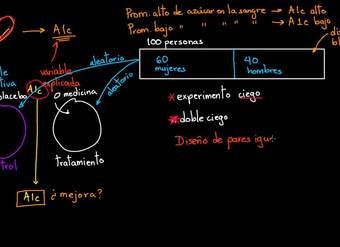 Prom. alto de azúcar en la sangre → A1c alto
Prom. bajo " " " " " → A1c bajo
→ A1c
100 personas
60 mujeres
40 hombres
aleatorio
aleatorio
variable
explicada
A1c
placebo
o medicina
tratamiento
* experimento ciego
* doble ciego
Diseño de pares igu
A1c ¿mejora?